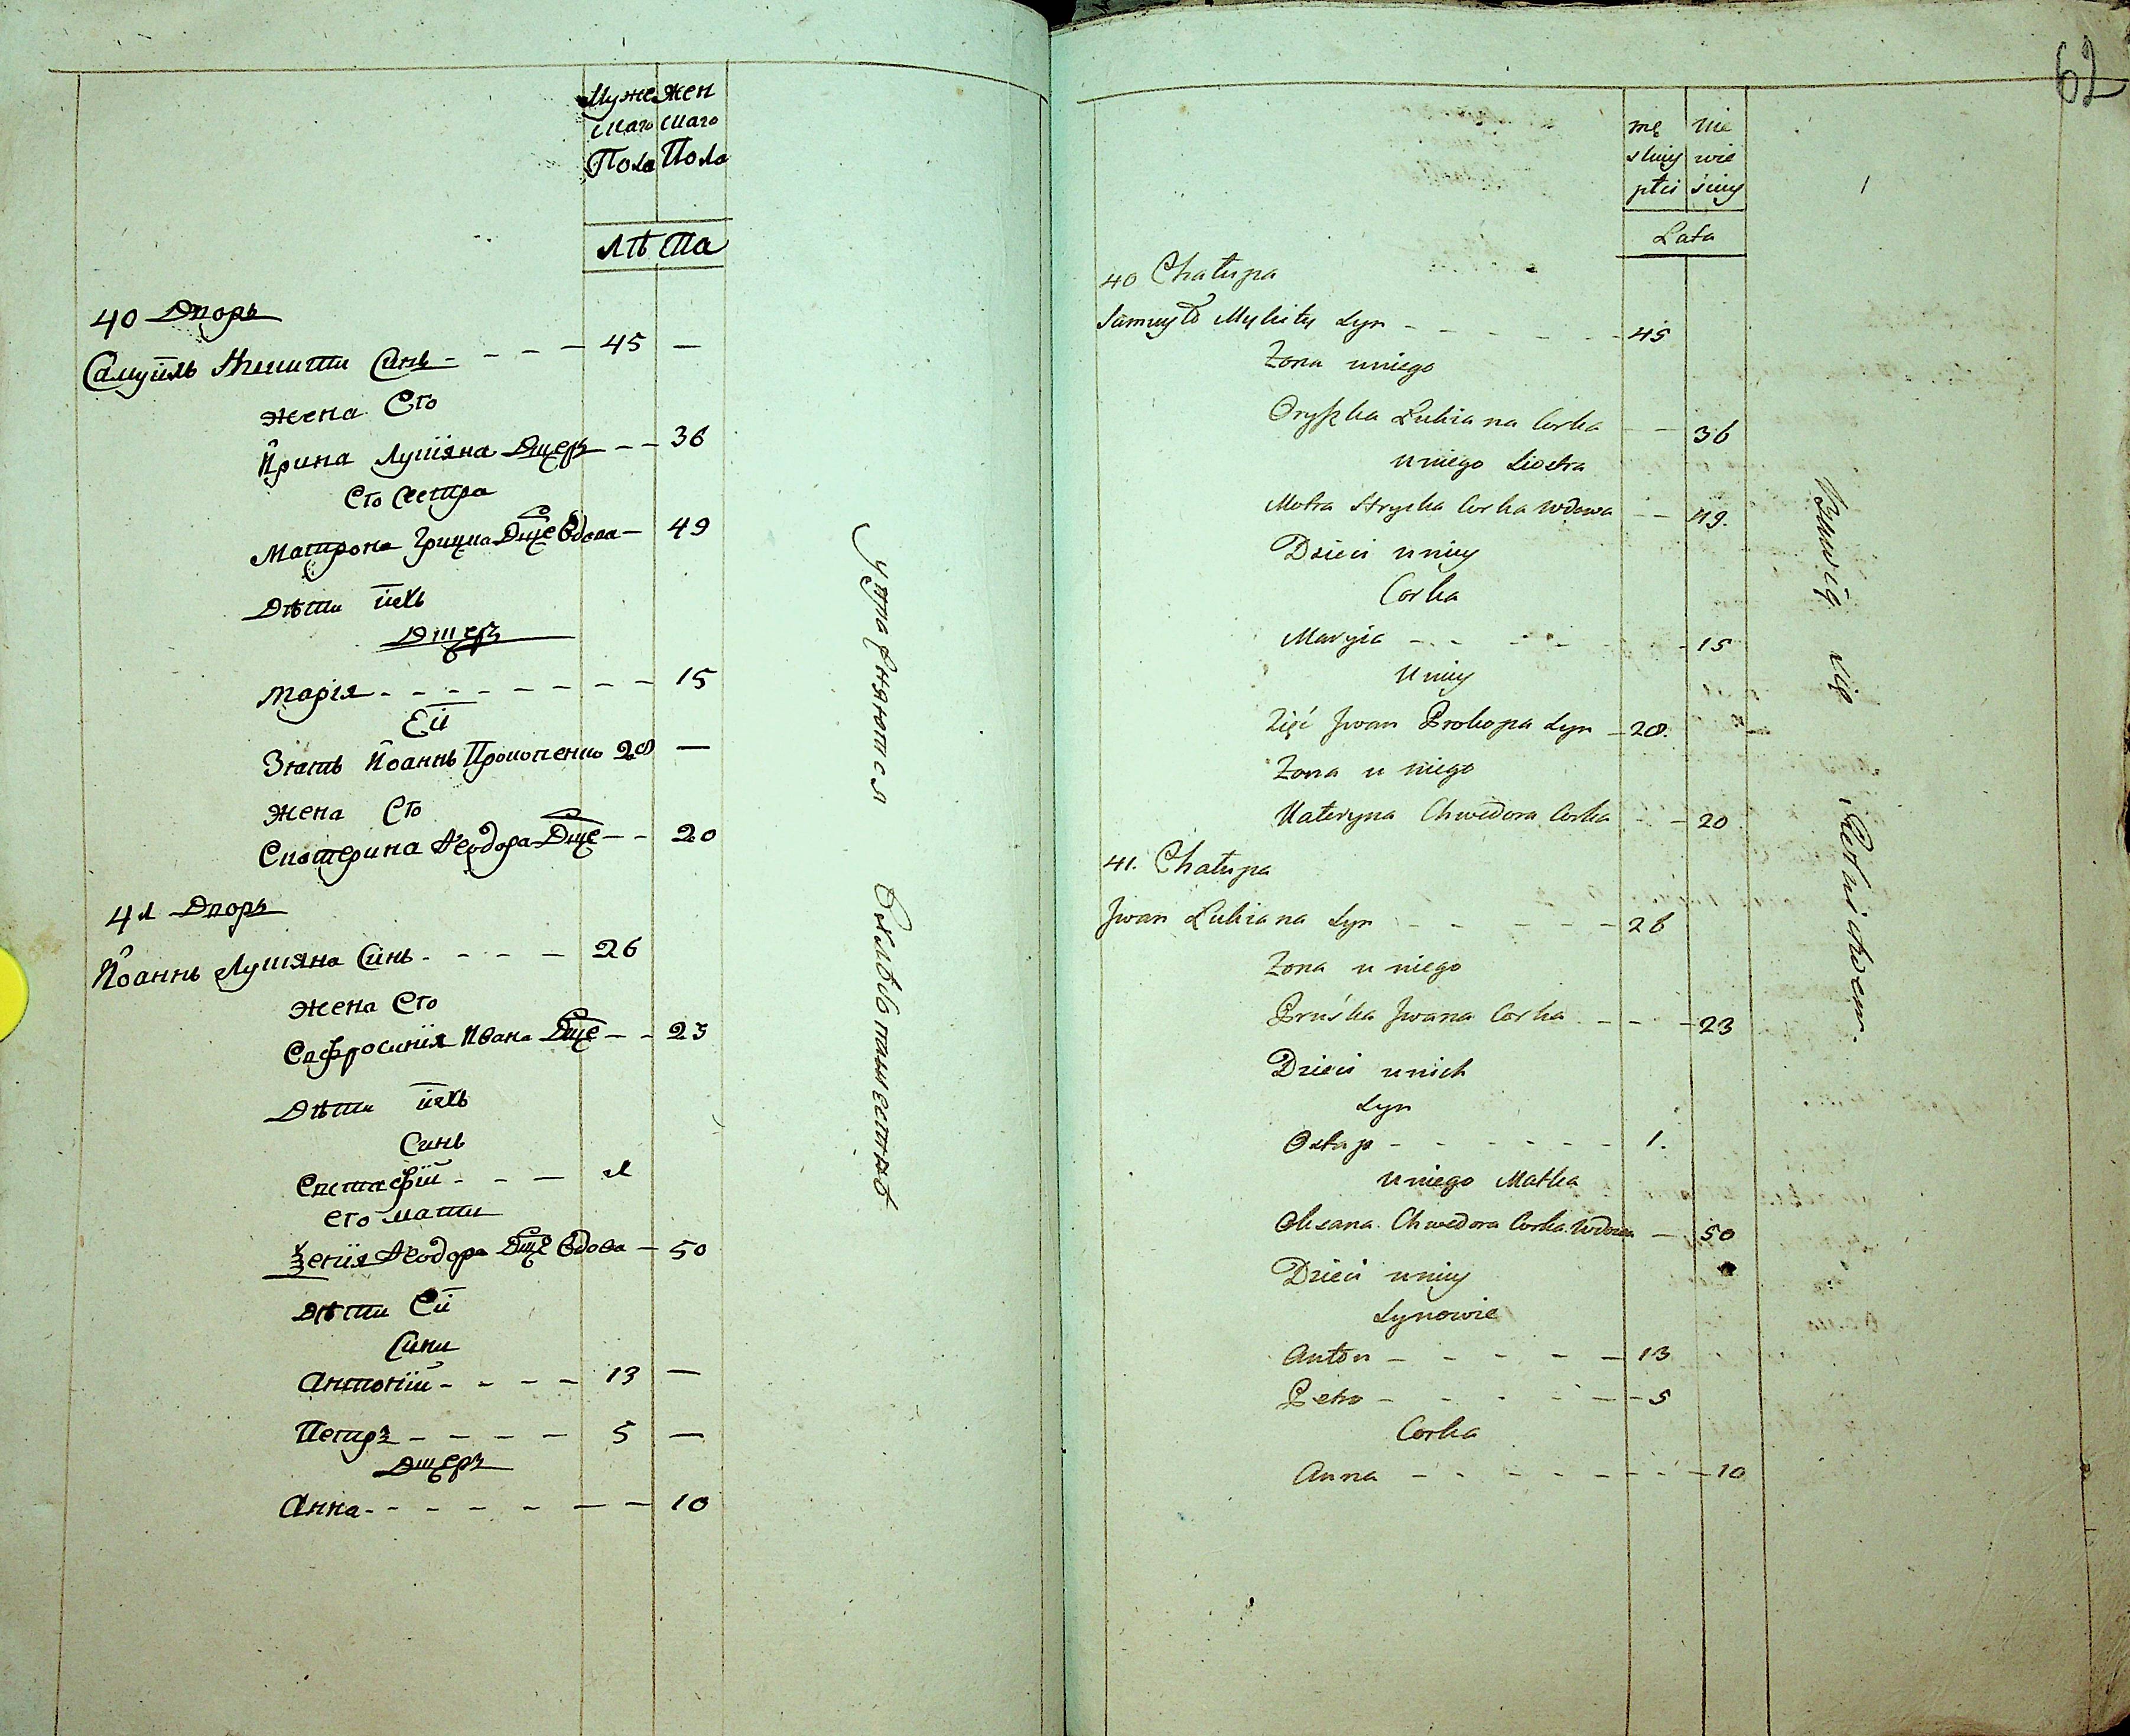 Муже Жен
скаго скаго
Пола Пола
Лѣта
40 Дворъ
Самуилъ Никити Синъ - - - - 45 —
Жена Его
Ирина Лукіяна Дщерь - - 36
Его Сестра
Матрона Грицка Дще Вдова — 49
Дѣти ихъ
Дщерь
Марія - - - - - - - - 15
Ей
Зять Иоаннъ Прокопенко 20 —
Жена Его
Екатерина Ѳеодора Дще - - 20
41 Дворъ
Иоаннъ Лукіяна Синъ - - - - 26
Жена Его
Евфросинія Ивана Дще - - 23
Дѣти ихъ
Синъ
Евстафій - - - 1
его мати
Ксенія Ѳеодора Дще Вдова — 50
Дѣти Ей
Сини
Антоній - - - - 13 —
Петръ - - - - - 5 —
Дщерь
Анна - - - - - - - 10
Упражняются Хлѣбопашествѣ
62
mę nie
skiey wie
płci ściey
Lata
40 Chałupa
Samuyło Mykity Syn - - - - - - 45
Zona u niego
Oryszka Łukiana Corka - - 36
u niego Siostra
Motra Hrycka Corka Wdowa - - 49.
Dzieci u niey
Corka
Maryia - - - - - - 15
U niey
Zięć Jwan Prokopa Syn - 20.
Zona u niego
Kateryna Chwedora Corka - - 20
41. Chałupa
Jwan Łukiana Syn - - - - - 26
Zona u niego
Pruśka Jwana Corka - - - 23
Dzieci u nich
Syn
Ostap - - - - - - 1.
u niego Matka
Oksana Chwedora Corka Wdowa — 50
Dzieci u niey
Synowie
Anton - - - - - 13
Petro - - - - - - 5
Corka
Anna - - - - - - - 10
Bawią się Rolnictwem.